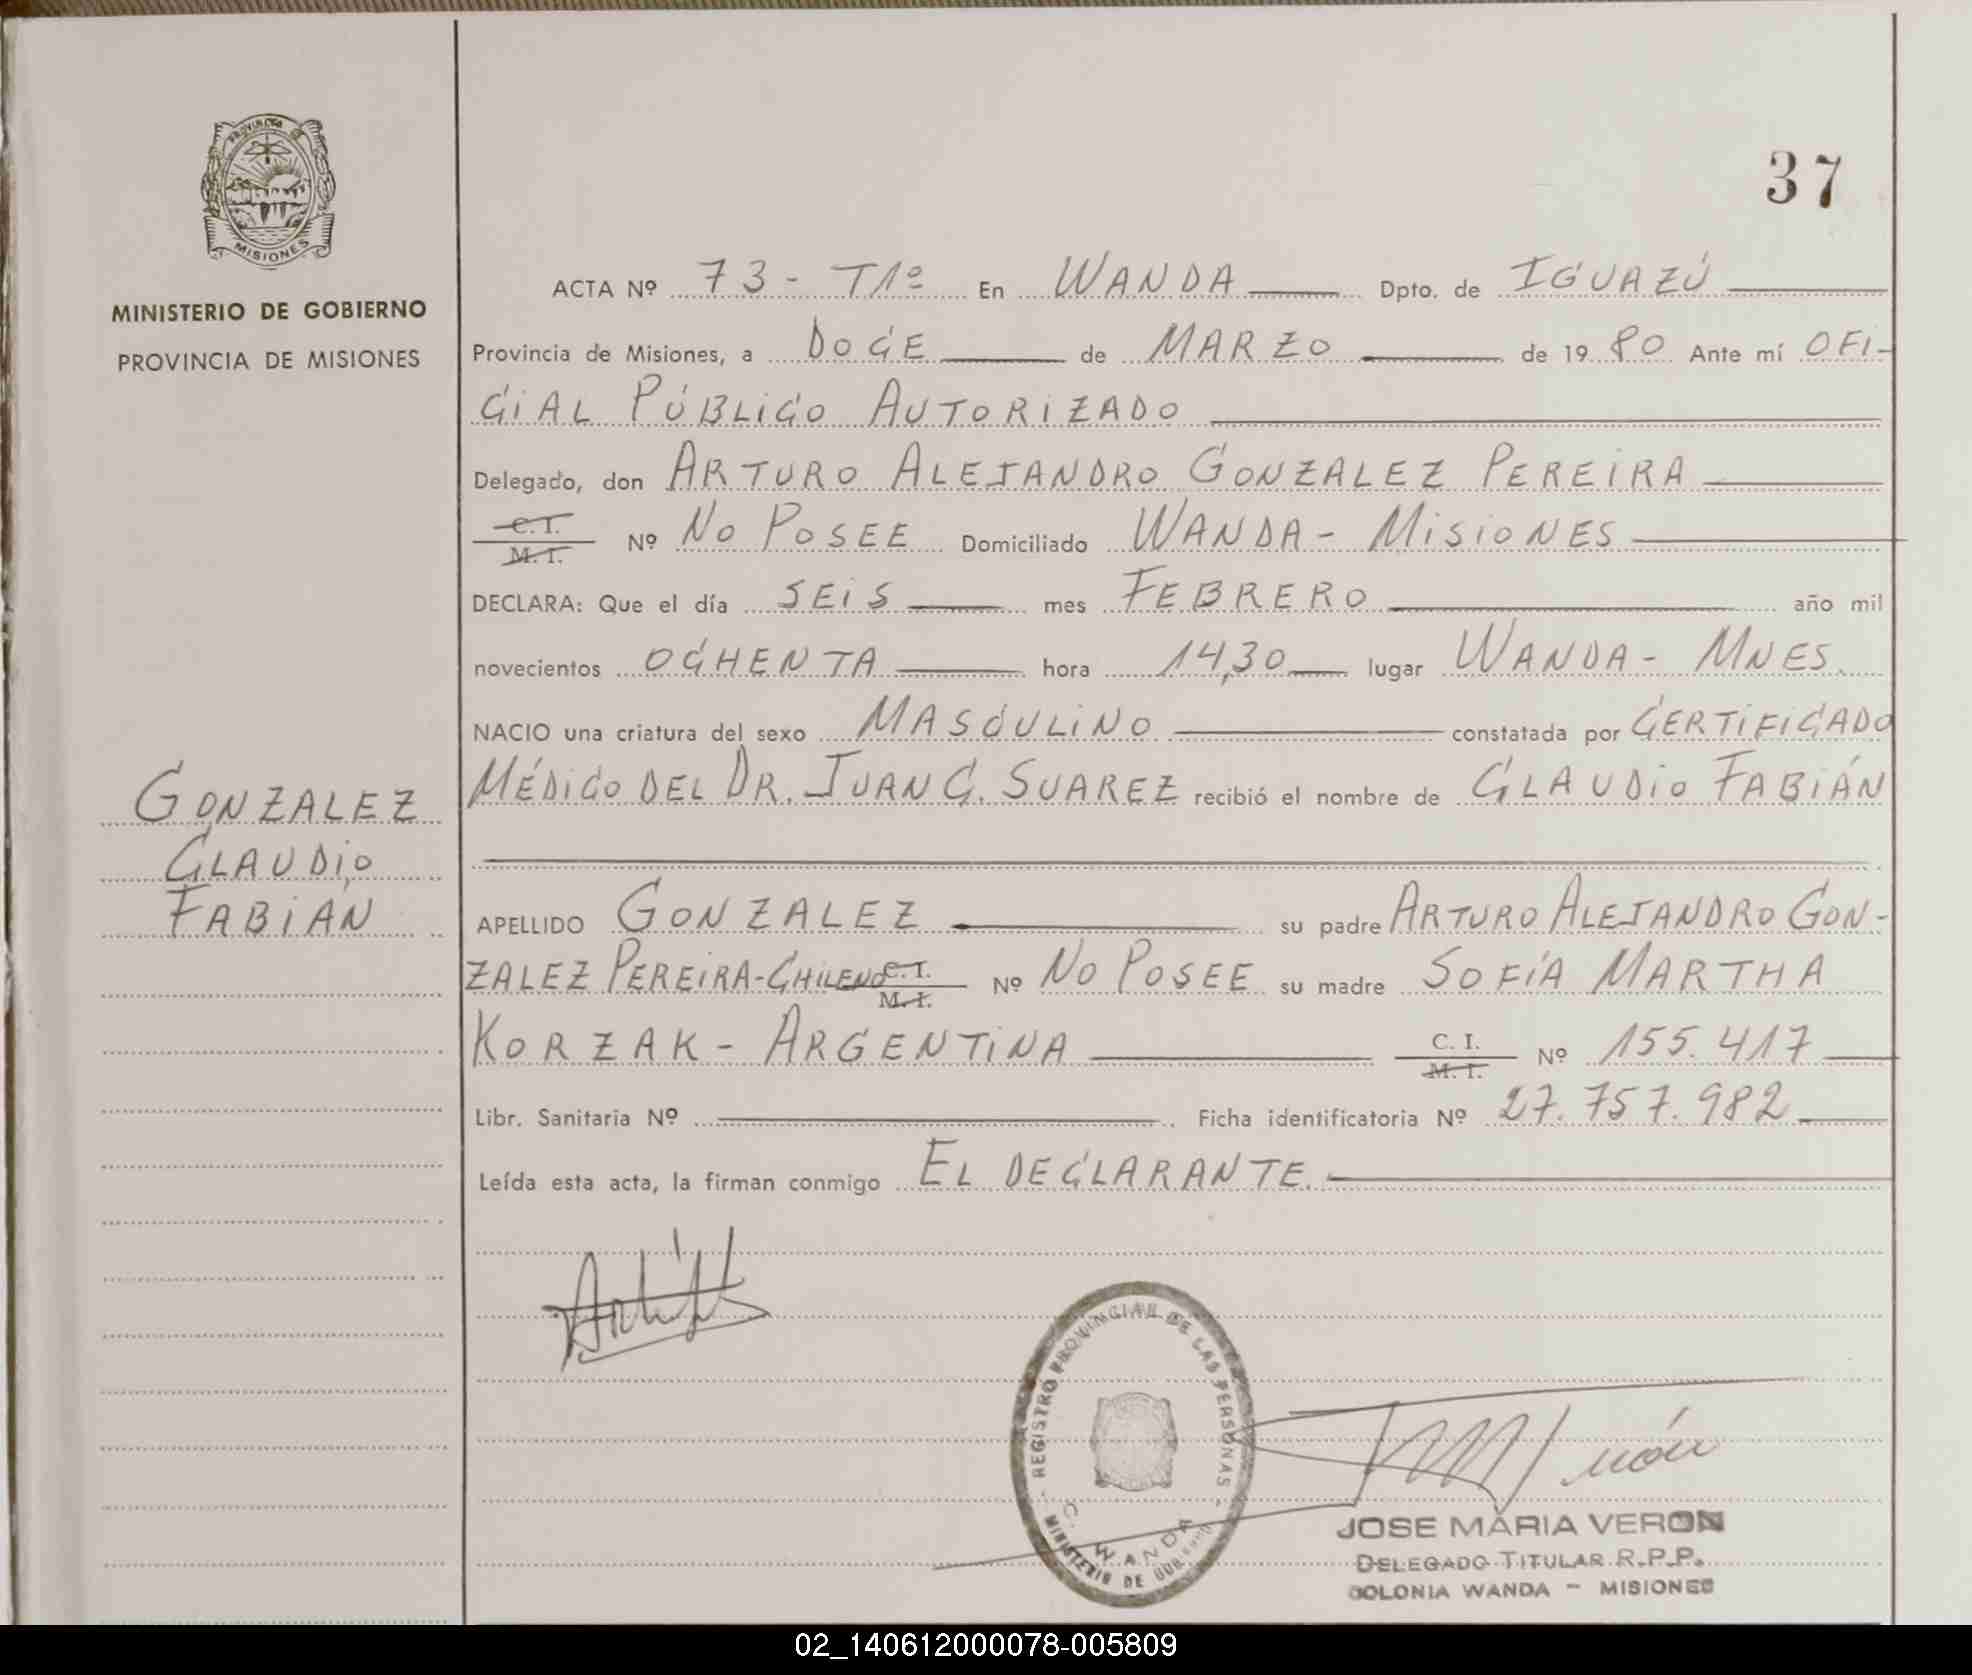 PROVINCIA DE
MISIONES
MINISTERIO DE GOBIERNO
PROVINCIA DE MISIONES
GONZALEZ
CLAUDIO
FABIAN
37
ACTA Nº 73 - T1º En WANDA Dpto. de IGUAZÚ
Provincia de Misiones, a DOCE de MARZO de 1980 Ante mí OFI-
CIAL PÚBLICO AUTORIZADO
Delegado, don ARTURO ALEJANDRO GONZALEZ PEREIRA
C. I. / M. I. Nº NO POSEE Domiciliado WANDA - MISIONES
DECLARA: Que el día SEIS mes FEBRERO año mil
novecientos OCHENTA hora 14,30 lugar WANDA - MNES.
NACIO una criatura del sexo MASCULINO constatada por CERTIFICADO
MÉDICO DEL DR. JUAN C. SUAREZ recibió el nombre de CLAUDIO FABIÁN
APELLIDO GONZALEZ su padre ARTURO ALEJANDRO GON-
ZALEZ PEREIRA-CHILENO C. I. / M. I. Nº NO POSEE su madre SOFÍA MARTHA
KORZAK - ARGENTINA C. I. / M. I. Nº 155.417
Libr. Sanitaria Nº Ficha identificatoria Nº 27.757.982
Leída esta acta, la firman conmigo EL DECLARANTE.
REGISTRO PROVINCIAL DE LAS PERSONAS
MINISTERIO DE GOBIERNO
C. WANDA
JOSE MARIA VERON
DELEGADO TITULAR R.P.P.
COLONIA WANDA - MISIONES
02_140612000078-005809